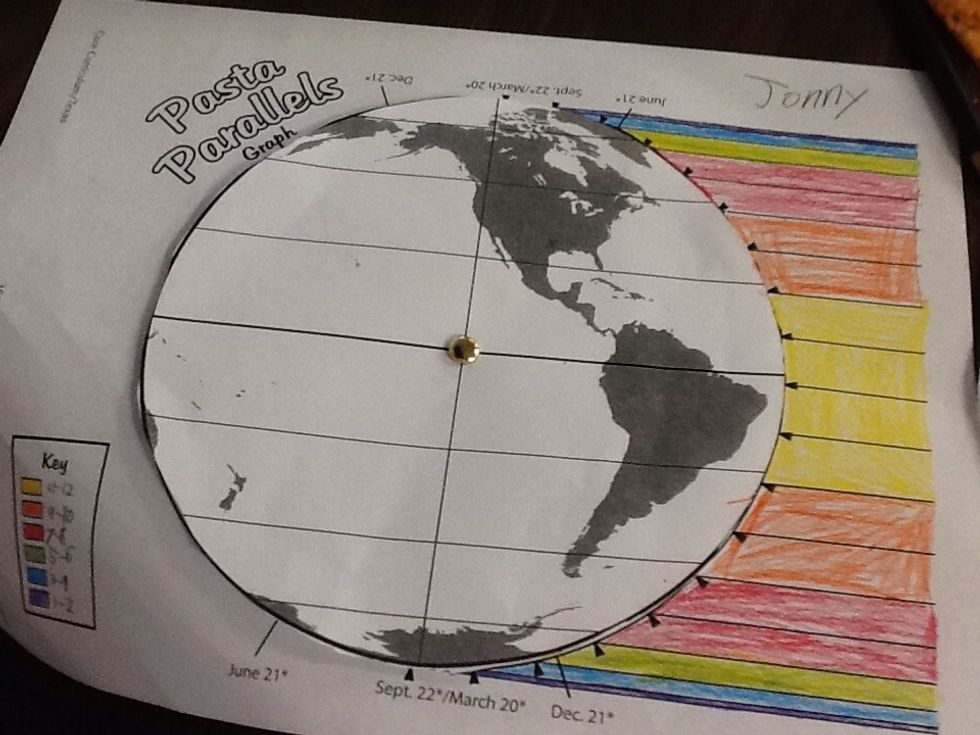 Pasta
Parallels
Graph
Dec. 21*
Sept. 22*/March 20*
June 21*
Jonny
Key
11-12
9-10
7-8
5-6
3-4
1-2
June 21*
Sept. 22*/March 20*
Dec. 21*